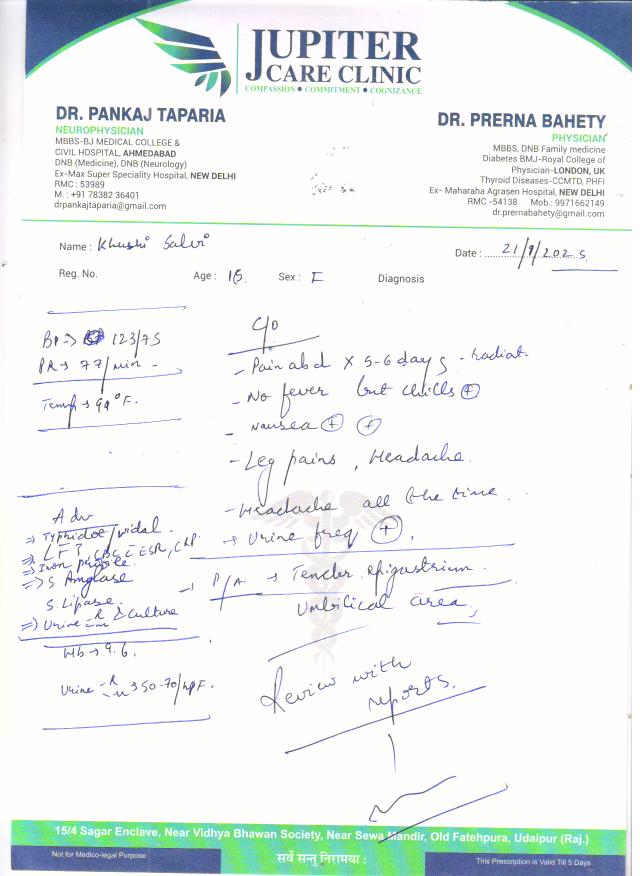 JUPITER
CARE CLINIC
COMPASSION • COMMITMENT • COGNIZANCE
DR. PANKAJ TAPARIA
NEUROPHYSICIAN
MBBS-BJ MEDICAL COLLEGE &
CIVIL HOSPITAL, AHMEDABAD
DNB (Medicine), DNB (Neurology)
Ex-Max Super Speciality Hospital, NEW DELHI
RMC : 53989
M. : +91 78382 36401
drpankajtaparia@gmail.com
DR. PRERNA BAHETY
PHYSICIAN
MBBS, DNB Family medicine
Diabetes BMJ-Royal College of
Physician-LONDON, UK
Thyroid Diseases-CCMTD, PHFI
Ex- Maharaha Agrasen Hospital, NEW DELHI
RMC -54138 Mob.: 9971662149
dr.prernabahety@gmail.com
Name : Khushi Salvi
Date : 21/9/2025
Reg. No. Age : 15 Sex : F Diagnosis
BP → 123/75
PR → 77/min
Temp → 99°F.
C/O
- Pain abd X 5-6 days - radiat.
- No fever but chills (+)
- Nausea (+) (+)
- Leg pains, Headache
- Headache all the time
→ Urine freq (+).
P/A. → Tender epigastrium
Umbilical area
Adv
⇒ Typhidot/widal.
⇒ LFT, CBC ESR, CRP.
⇒ Iron profile.
⇒ S Amylase
S. Lipase.
⇒ Urine R/m & culture
Hb → 9.6.
Urine R/m → 50-70/HPF.
Review with
reports.
15/4 Sagar Enclave, Near Vidhya Bhawan Society, Near Sewa Mandir, Old Fatehpura, Udaipur (Raj.)
Not for Medico-legal Purpose
सर्वे सन्तु निरामया :
This Prescription is Valid Till 5 Days